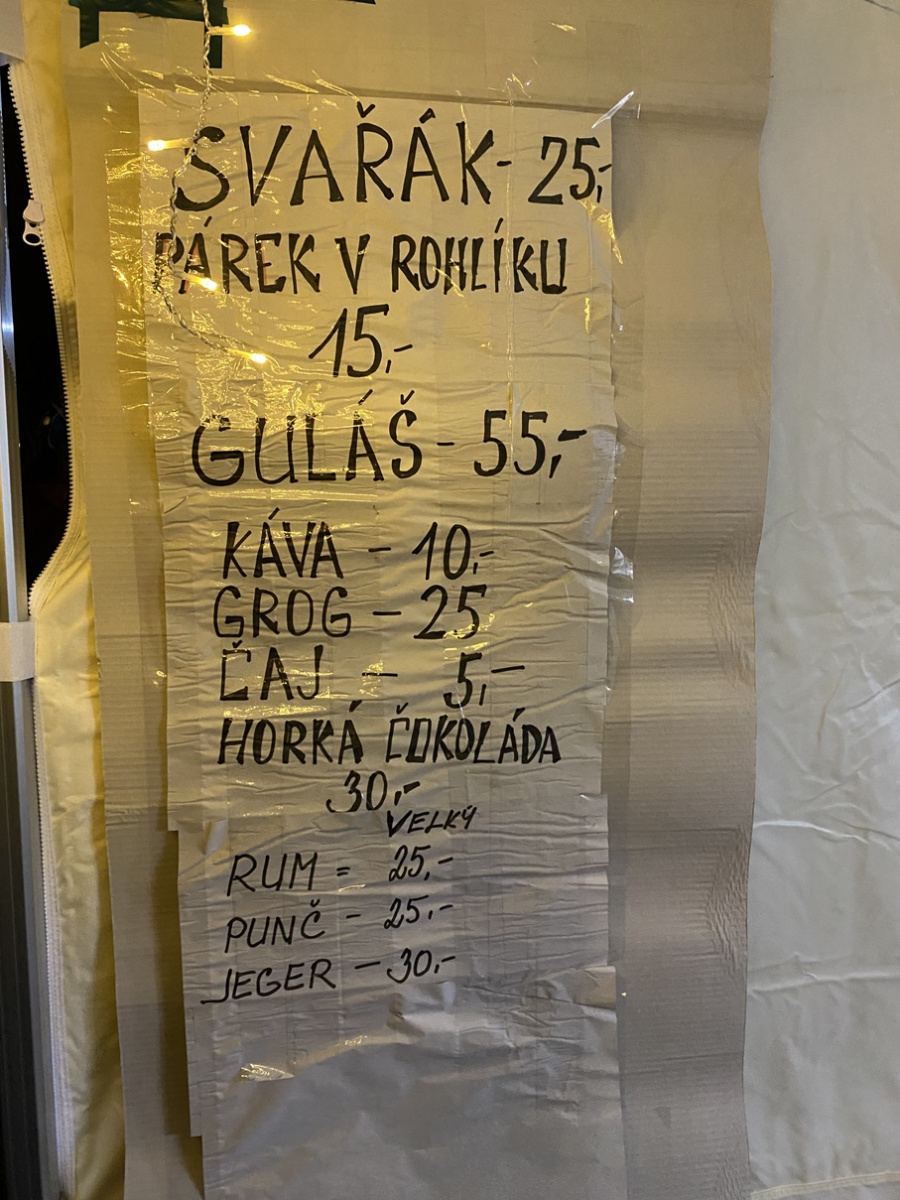 SVAŘÁK- 25,-
PÁREK V ROHLÍKU
15,-
GULÁŠ - 55,-
KÁVA - 10,-
GROG - 25
ČAJ - 5,-
HORKÁ ČOKOLÁDA
30,-
VELKÝ
RUM = 25,-
PUNČ - 25,-
JEGER - 30,-